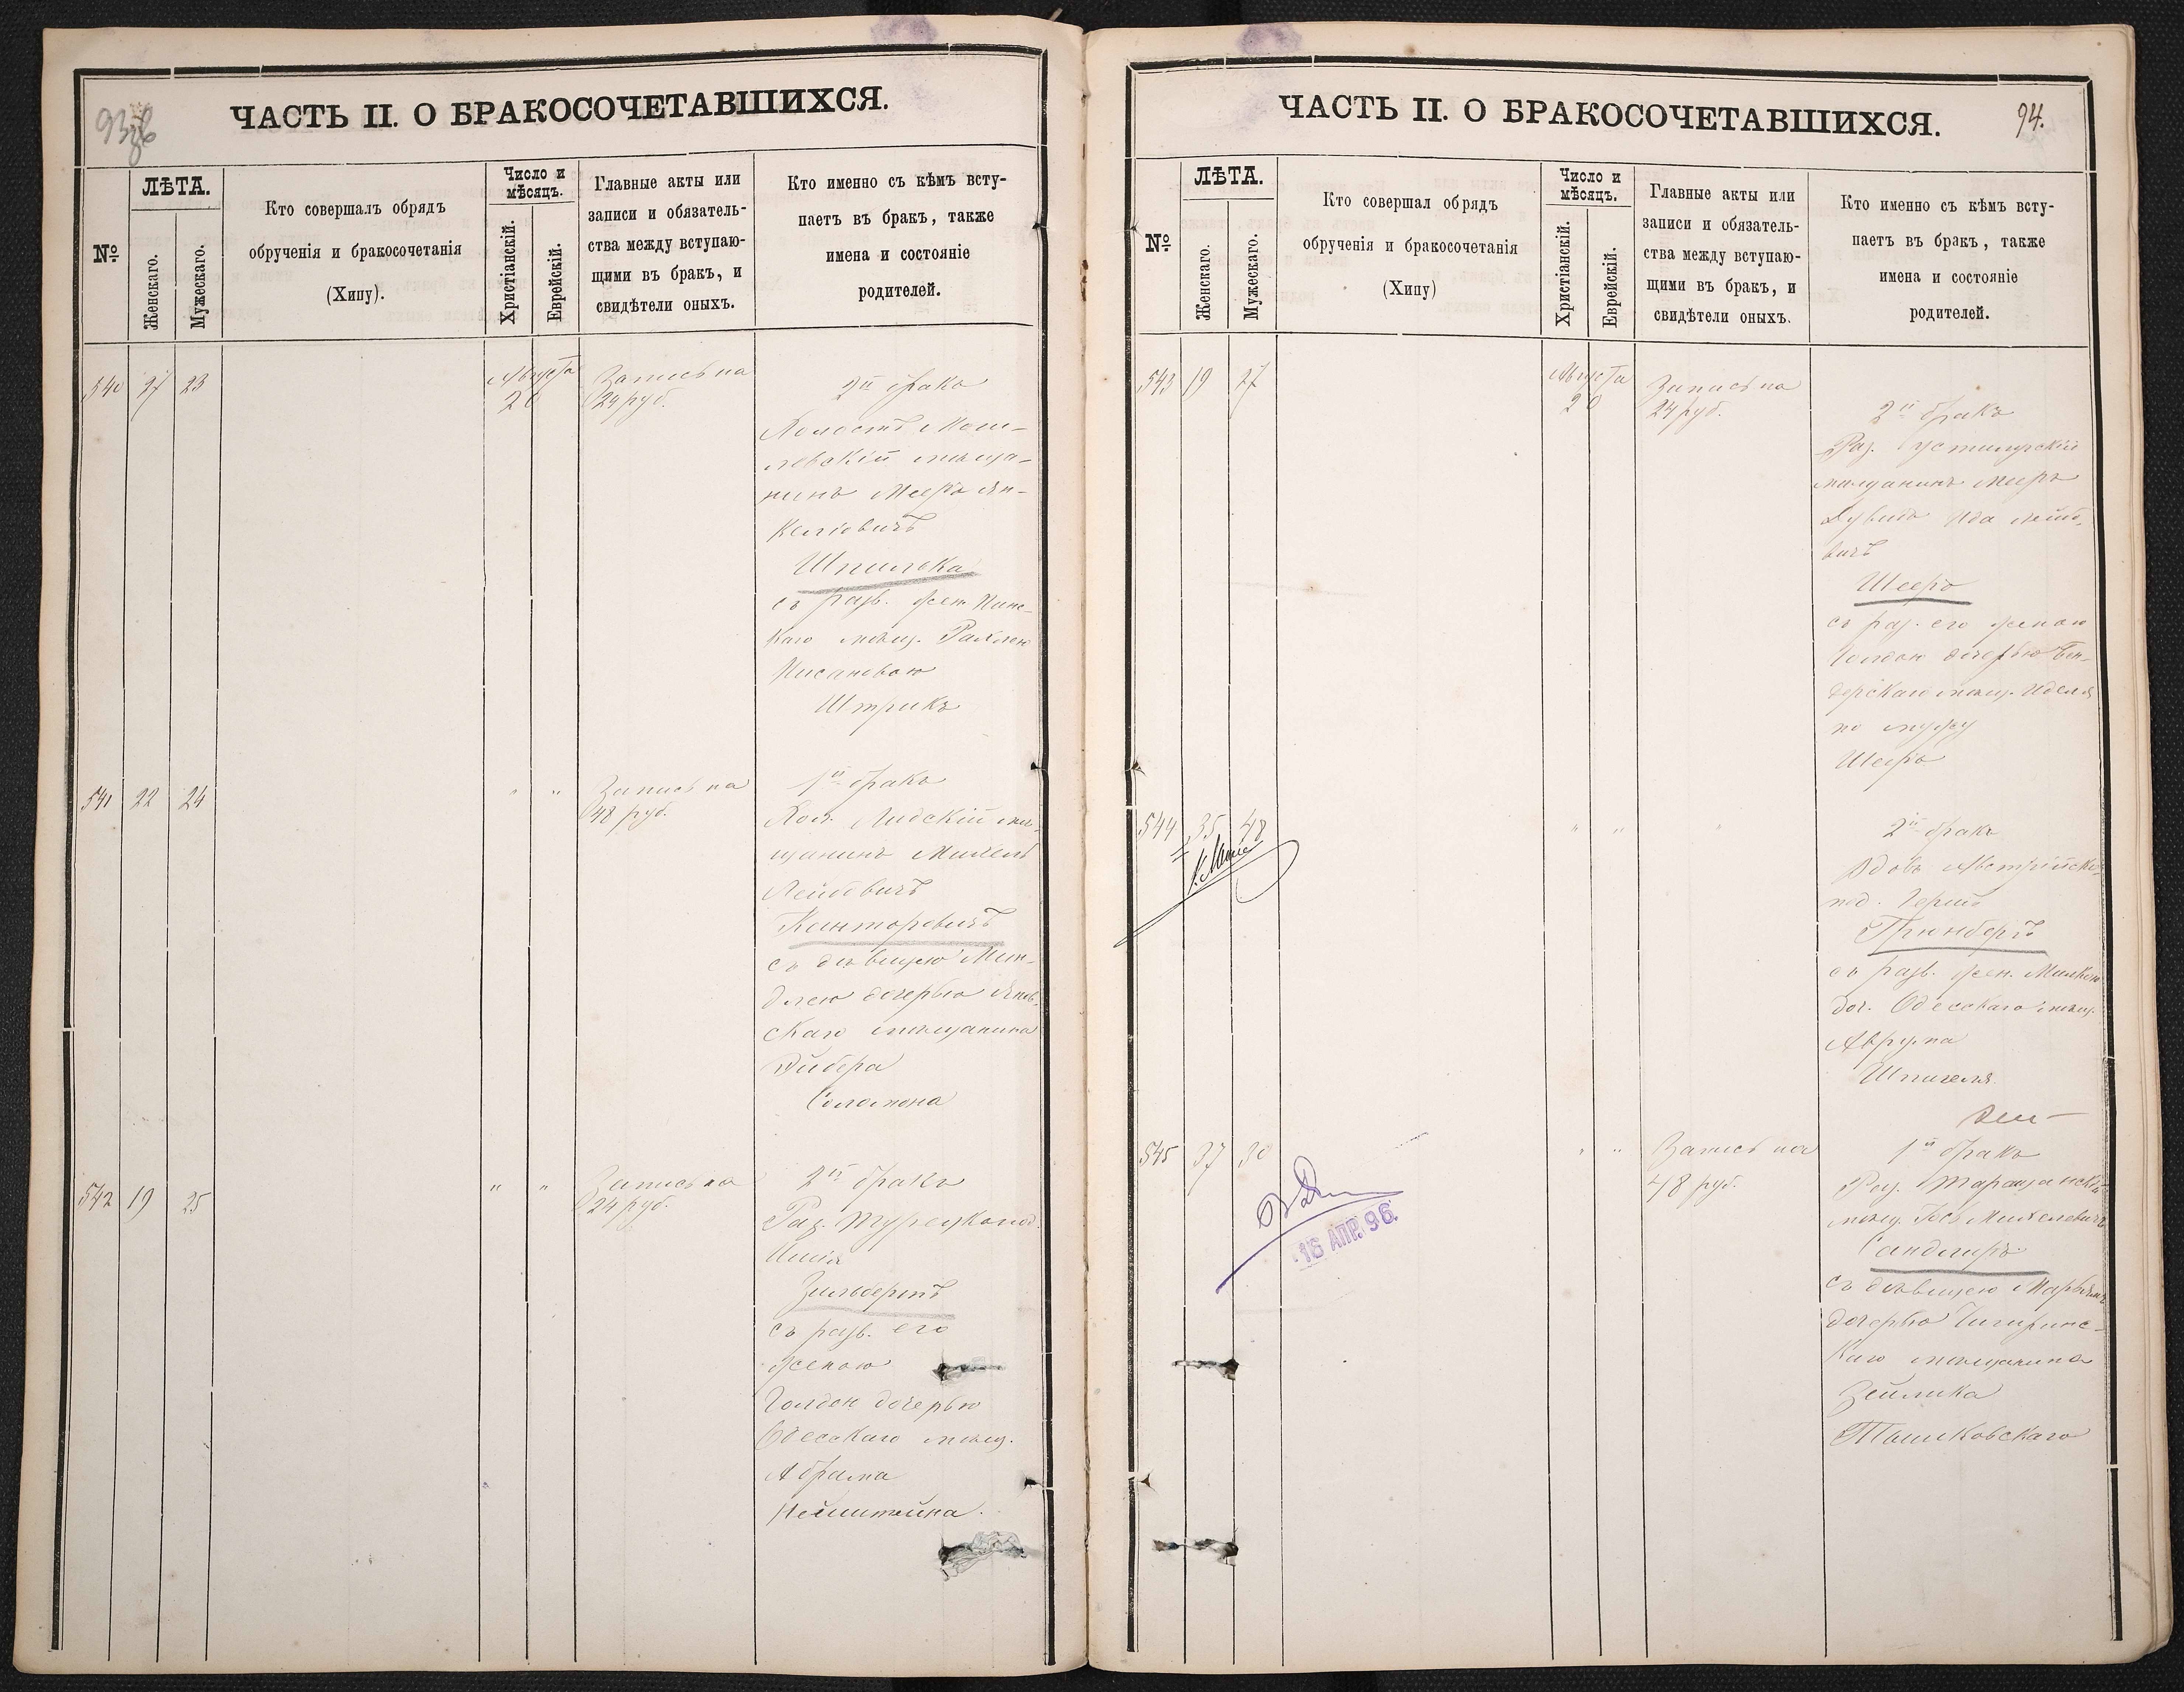 93об
ЧАСТЬ II. О БРАКОСОЧЕТАВШИХСЯ.
№
ЛѢТА.
Женскаго.
Мужескаго.
Кто совершалъ обрядъ
обрученія и бракосочетанія
(Хипу).
Число и
мѣсяцъ.
Христіанскій.
Еврейскій.
Главные акты или
записи и обязатель-
ства между вступаю-
щими въ бракъ, и
свидѣтели оныхъ.
Кто именно съ кѣмъ всту-
паетъ въ бракъ, также
имена и состояніе
родителей.
540 27 23
Августа
20
Запись на
24 руб.
2й бракъ
Холостъ
мѣща-
нинъ Мееръ Ян-
келіовичъ
Шпилека
съ разв. жен. Пинс-
каго мѣщ. Рахлею
Нисановою
Штрикъ
541 22 24
" "
Запись на
48 руб.
1й бракъ
Хол. Лидскій мѣ-
щанинъ Михель
Лейбовичъ
Канторовичъ
съ дѣвицею Мин-
длею дочерью
скаго мѣщанина
Соломона
542 19 25
" "
Запись на
24 руб.
2й бракъ
Раз. Турецкопод.
Зильберт
съ разв. его
женою
Голдою дочерью
Одесскаго мѣщ.
Абрама
94.
ЧАСТЬ II. О БРАКОСОЧЕТАВШИХСЯ.
№
ЛѢТА.
Женскаго.
Мужескаго.
Кто совершал обрядъ
обрученія и бракосочетанія
(Хипу)
Число и
мѣсяцъ.
Христіанскій.
Еврейскій.
Главные акты или
записи и обязатель-
ства между вступаю-
щими въ бракъ, и
свидѣтели оныхъ.
Кто именно съ кѣмъ всту-
паетъ въ бракъ, также
имена и состояніе
родителей.
543 19 27
Августа
20
Запись на
24 руб.
2й бракъ
Раз. Устилугскій
мѣщанинъ Меиръ
Дувидъ
вичъ
Шееръ
съ раз. его женою
Голдою дочерью Бен-
дерскаго мѣщ. Иделя
по мужу
Шееръ
544 35 48
" " "
2й бракъ
Вдовъ Австрійско-
под. Герш
Грюнбергъ
съ разв. жен. Милкою
доч. Одесскаго мѣщ.
Аврума
Шпигеля
545 37 30
" "
Запись на
48 руб.
1й бракъ
Раз. Таращанскій
мѣщ. Іось Михелевичъ
Сандлеръ
съ дѣвицею Марьямъ
дочерью Чигиринс-
каго мѣщанина
Зейлика
Ташлковскаго
16 АПР. 96